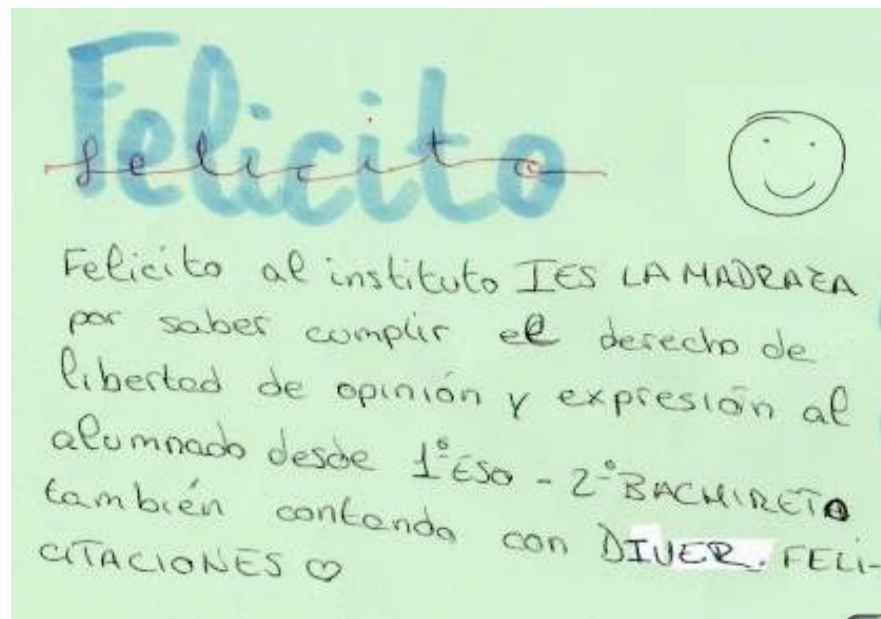 Felicito
felicito
Felicito al instituto IES LA MADRAZA
por saber cumplir el derecho de
libertad de opinión y expresión al
alumnado desde 1º ESO - 2º BACHIRETO
también contando con DIVER. FELI-
CITACIONES ♡